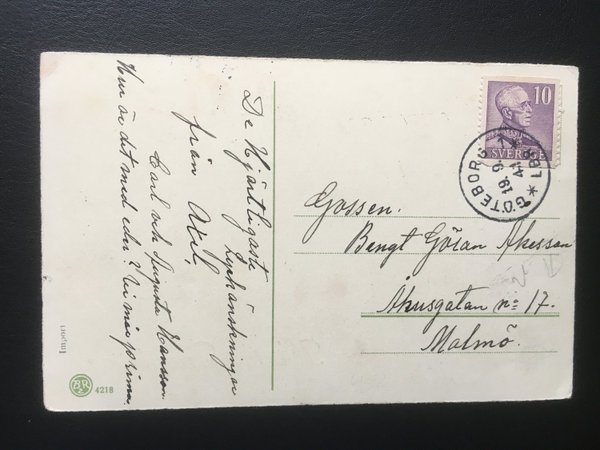 De Hjärtligaste
Lyckönskningar
från Axel,
Carl och Augusta Hansson.
Hur är det med eder? Vi mår prima.
10
SVERIGE
GÖTEBORG 1
19.9.
41
* LBR *
Gossen.
Bengt Göran Åkesson
Åkusgatan n:o 17.
Malmö.
Imp/011
BR
4218